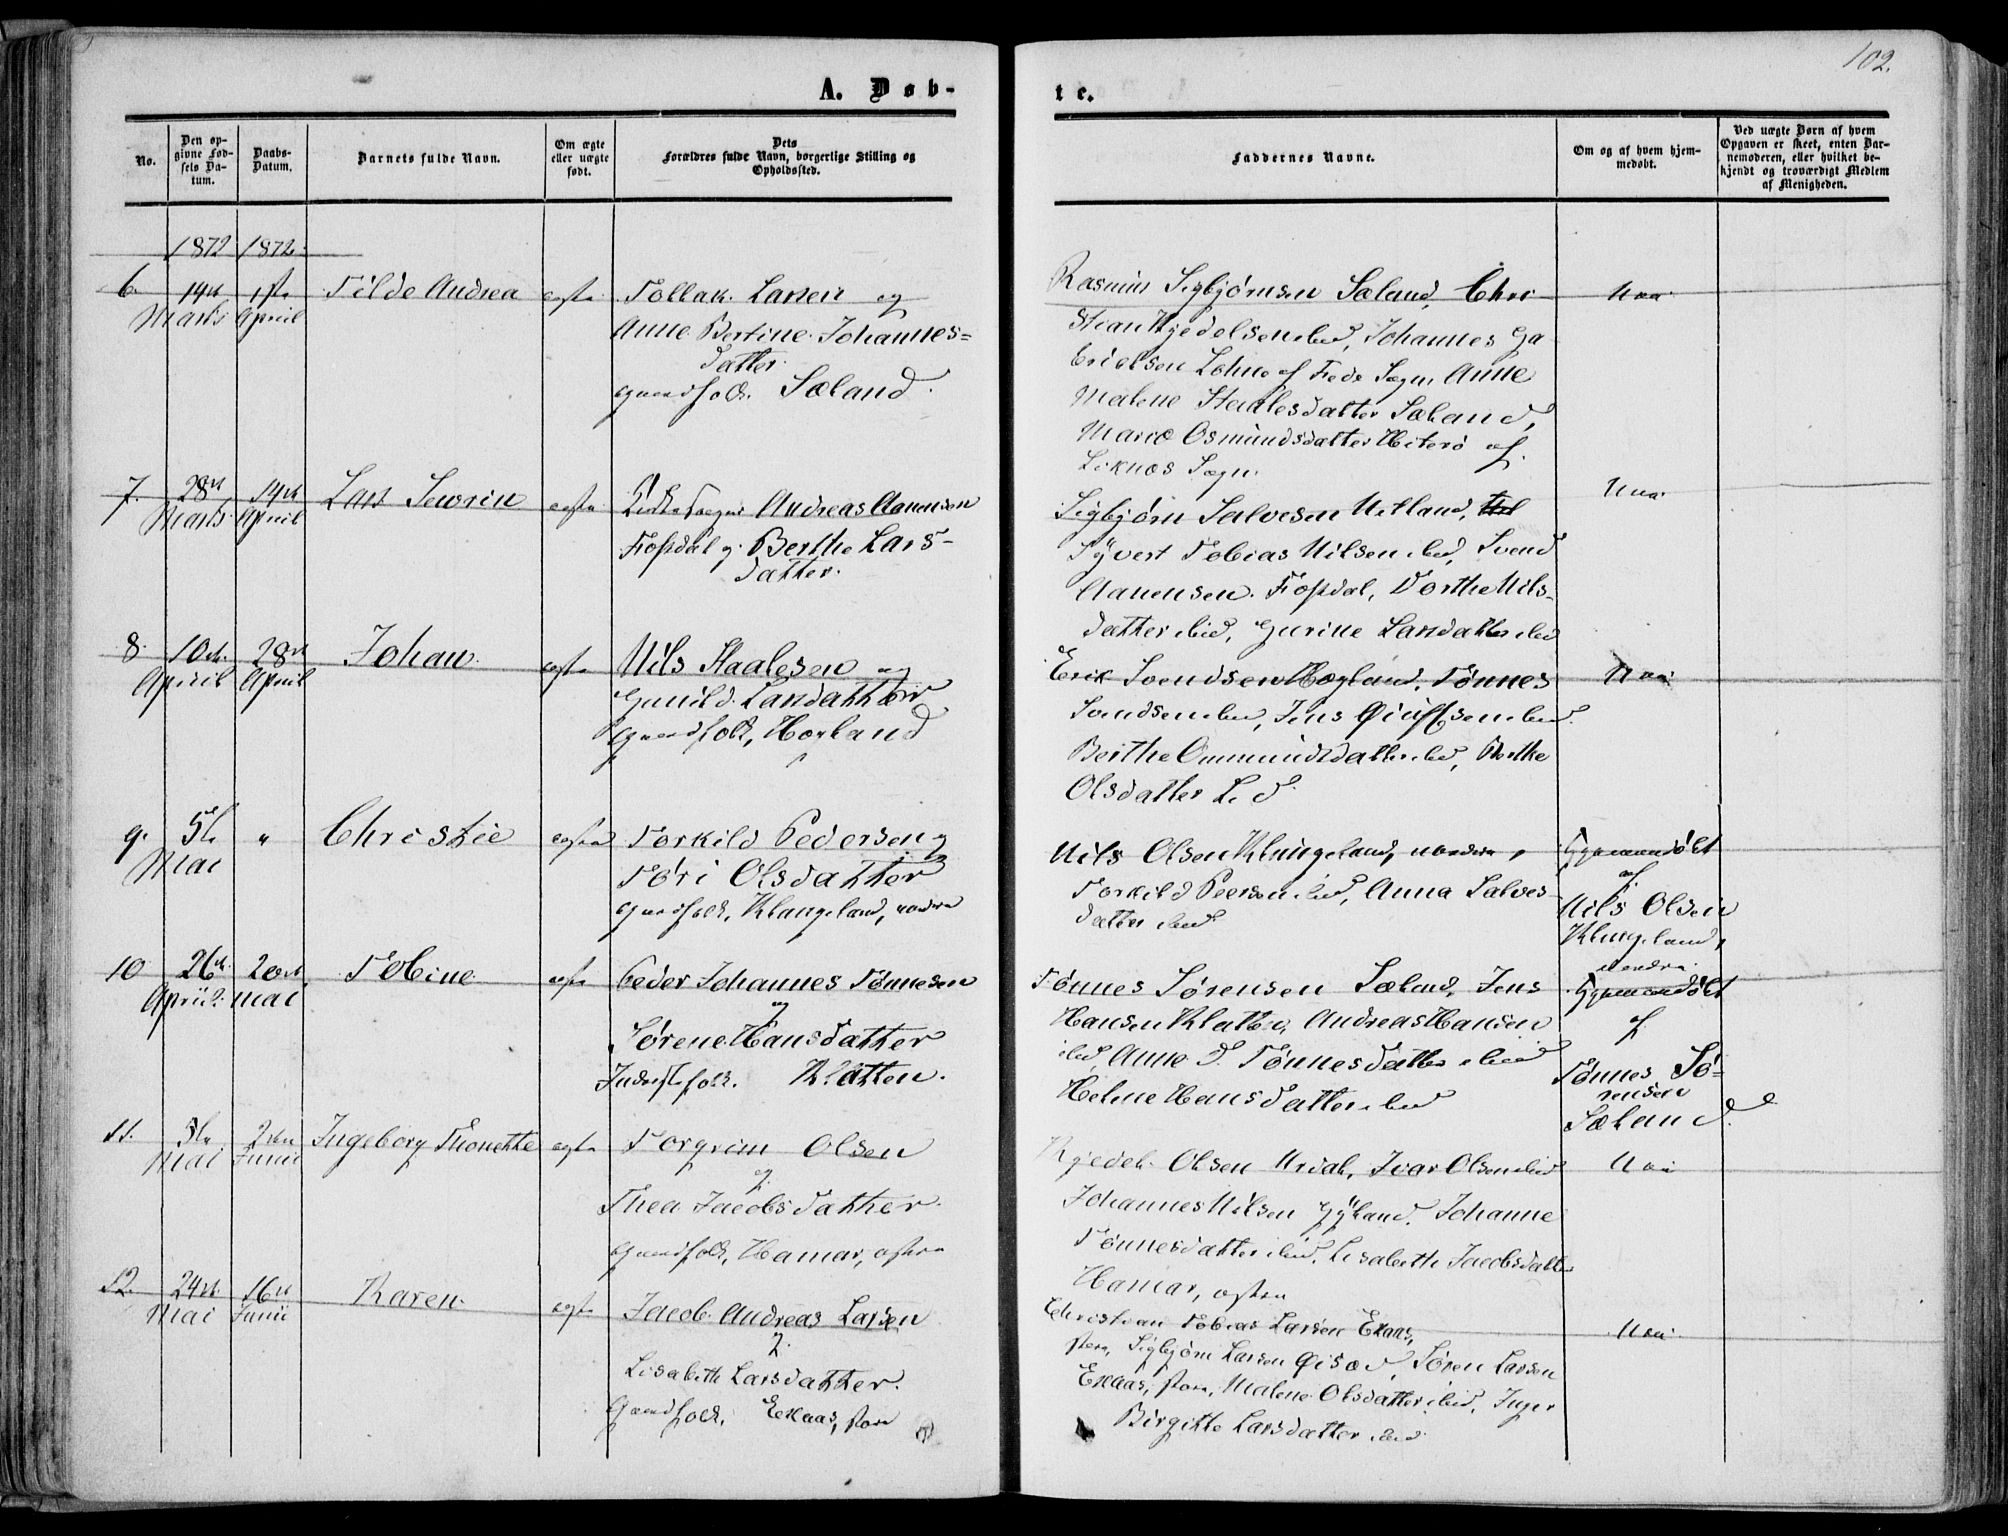 102.
A. Døb-
te.
No.
Den op-
givne Fød-
sels Da-
tum.
Daabs-
Datum.
Barnets fulde Navn.
Om ægte
eller uægte
født.
Dets
Forældres fulde Navn, borgerlige Stilling og
Opholdssted.
Faddernes Navne.
Om og af hvem hjem-
medøbt.
Ved uægte Børn af hvem
Opgaven er skeet, enten Bar-
nemoderen, eller hvilket be-
kjendt og troværdigt Medlem
af Menigheden.
1872 1872
6. 14de 1ste Tilde Andrea ægte Tollak Larsen og
Marts April
Anne Bertine Johannes=
datter
Gaardfolk. Sæland.
Rasmus Sigbjørnsen Sæland, Chri-
stian Kjedelsen ibid, Johannes Ga
brielsen Lohne af Fede Sogn, Anne
Malene Staalesdatter Sæland,
Marie Osmundsdatter Hiterø af
Liknæs Sogn.
Nei
7. 28de 14de Lars Sewrin ægte Andreas Aanensen
Marts April
Fossdal og Berthe Lars-
datter.
Sigbjørn Salvesen Netland,
Syvert Tobias Nilsen ibid, Svend
Aanensen Fossdal, Dorthe Nils-
datter ibid, Gurine Larsdatter ibid
Nei
8. 10de 28de Johan. ægte Nils Staalesen og
April April
Gunild Larsdatter
Gaardfolk, Hogland
Erik Svendsen Høgland, Tønnes
Svendsen ibid, Jens ibid.
Berthe Ommundsdatter ibid, Berthe
Olsdatter
Nei
9. 5te " Christie ægte Torkild Pedersen og
Mai
Tøri Olsdatter
Gaardfolk, Klungeland, nordre
Nils Olsen Klungeland, nordre,
Torkild Peersen ibid, Anna Salves-
datter ibid
Hjemmedøbt
af
Nils Olsen
Klungeland,
nordre.
10 26de 20de Tobine ægte Peder Johannes Tønnesen
April Mai
og
Sørene Hansdatter
Inderstfolk. Klatten.
Tønnes Sørensen Sæland, Jens
Hansen Klatten, Andreas Hansen
ibid, Anne T. Tønnesdatter ibid
Helene Hansdatter ibid
Hjemmedøbt
af
Tønnes Sø-
rensen
Sæland.
11. 5te 2den Ingeborg Thonette ægte Torgrim Olsen
Mai Junii
og
Thea Jacobsdatter.
Gaardfolk, Hamar, østre
Kjedel Olsen Urdal, Ivar Olsen ibid
Johannes Nilsen Gyland, Johanne
Tønnesdatter ibid, Lisabeth Jacobsdatter
Hamar, østre
Nei
12. 24de 16de Karen. ægte Jacob Andreas Larsen
Mai Junii
og
Lisabeth Larsdatter.
Gaardfolk, Eekaas, store
Christian Tobias Larsen Ekaas,
store, Sigbjørn Larsen Øisæd, Søren Larsen
Ekaas, store, Malene Olsdatter ibid, Inger
Birgitte Larsdatter ibid
Nei